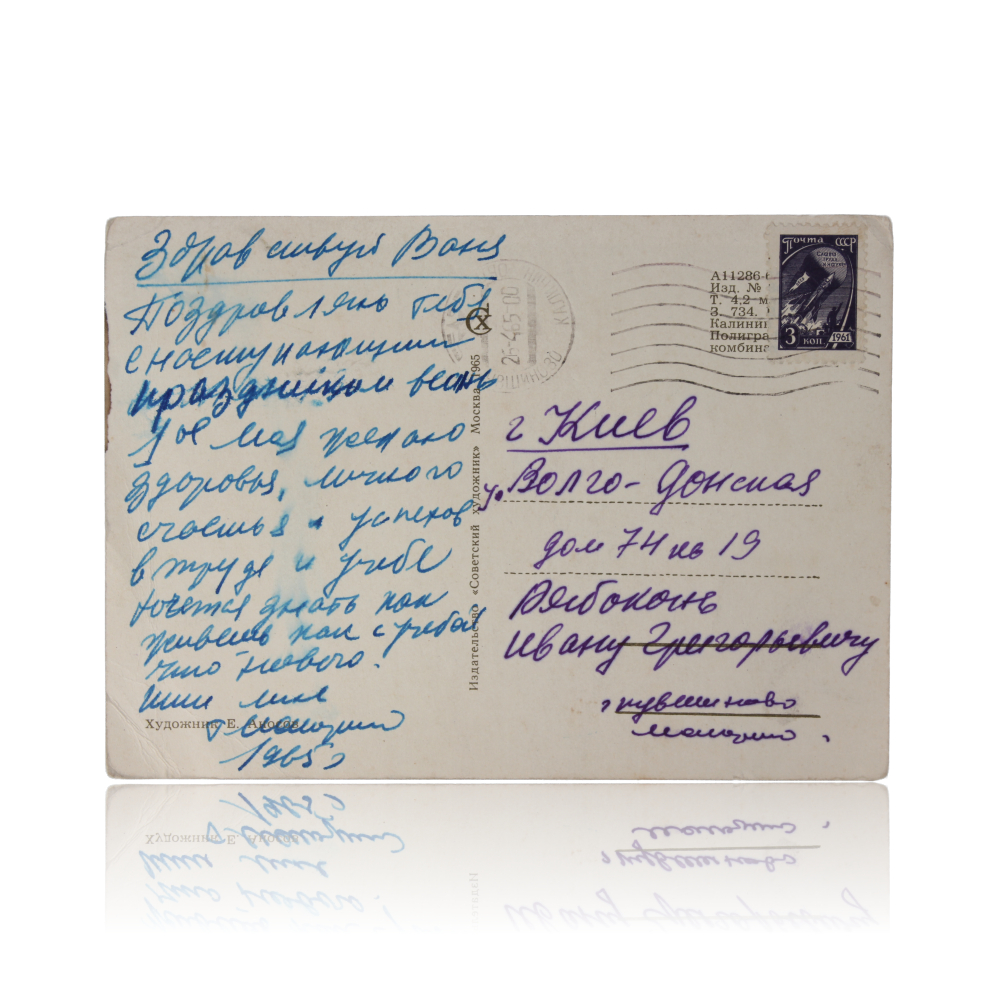 Здравствуй Ваня
Поздравляю тебя
с наступающим
праздником весны
1ое мая желаю
здоровья, личного
счастья и успехов
в труде и учебе
хочется знать как
живешь как с учебой
что нового.
пиши мне
Художник Е. Аносов
1965 г
Издательство «Советский художник» Москва 1965
26-4.65-00
А11286
Изд. №
Т. 4,2 м
З. 734.
Калинин
Полигра
комбина
Почта СССР
СЛАВА
ТРУДУ
И НАУКЕ
3 коп. 1961
г Киев
у. Волго-Донская
дом 74 кв 19
Рябоконь
Ивану Григорьевичу
г кувшиново